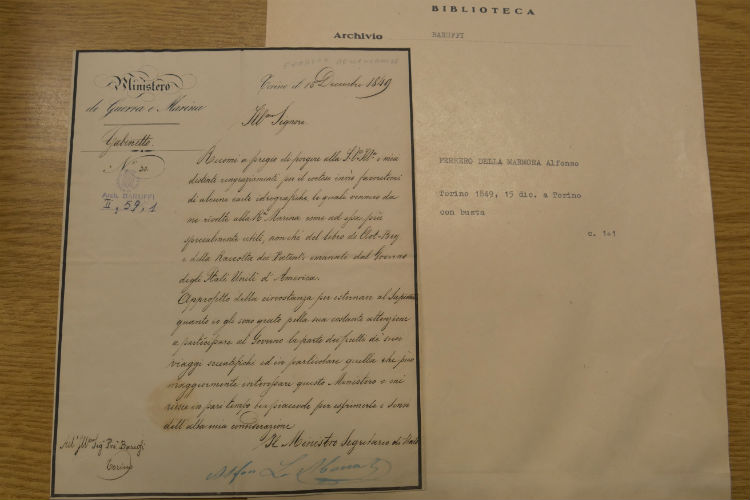 BIBLIOTECA
Archivio BARUFFI
FERRERO DELLA MARMORA Alfonso
Torino 1849, 15 dic. a Torino
con busta
c. 1+1
Ministero
di Guerra e Marina
Gabinetto
N.° 30.
Arch. BARUFFI
II, 59, 1
Torino il 15 Decembre 1849
Ill.mo Signore
Recomi a pregio di porgere alla S.V. Ill.ma i miei
distinti ringraziamenti per il cortese invio favoritomi
di alcune carte idrografiche le quali vennero da
me rivolte alla R.a Marina come ad essa più
specialmente utili, nonchè del libro de
e della Raccolta dei Patenti emanate dal Governo
degli Stati Uniti d'America.
Approfitto della circostanza per esternare al
quanto io gli sono grato pella sua costante attenzione
a partecipare al Governo la parte dei frutti de' suoi
viaggi scientifici ed in particolare quella che può
maggiormente interessare questo Ministero e mi
in pari tempo per esprimerle i sensi
dell'alta mia considerazione
Il Ministro Segretario di Stato
All' Ill.mo Sig.r Prof. Baruffi
Torino
Alfon La Marmora